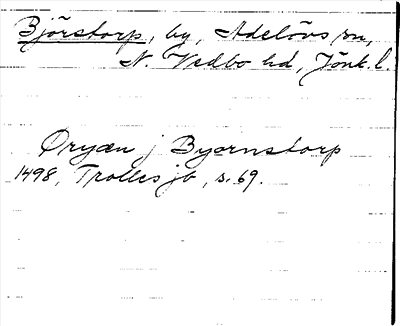 Björstorp, by, Adelövs sn,
N. Vedbo hd, Jönk. l.
Øryæn j Byornstorp
1498, Trolles jb, s. 69.